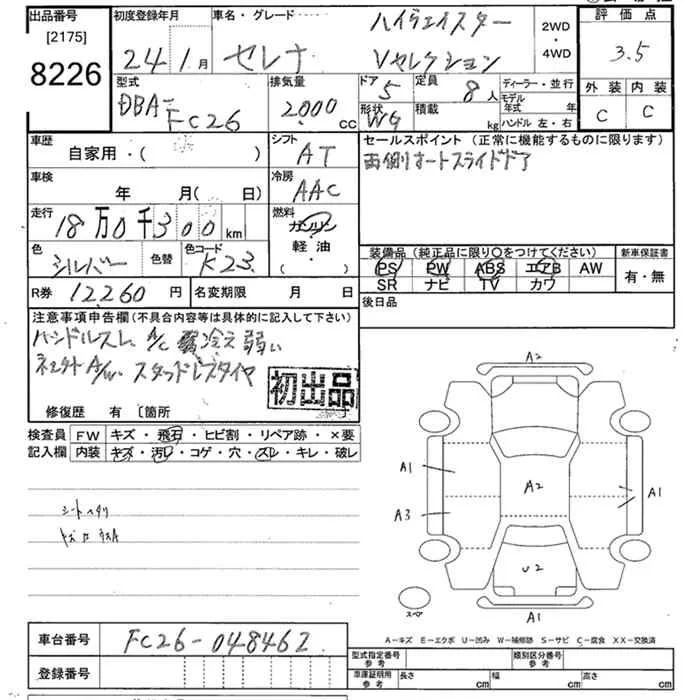 出品番号 初度登録年月 車名・グレード ハイウェイスター 2WD 評価点
[2175] 24 1月 セレナ Vセレクション ・ 3.5
8226 4WD
型式 排気量 ドア 5 定員 8人 ディーラー・並行 外装 内装
DBA-FC26 2000cc 形状 WG 積載 kg モデル年式 年 C C
ハンドル 左・右
車歴 自家用・( ) シフト AT セールスポイント (正常に機能するものに限ります)
両側オートスライドドア
車検 年 月(日) 冷房 AAC
走行 18万0千300km 燃料 ガソリン
軽油
・( )
色 シルバー 色替 色コード K23 装備品 (純正品に限り○をつけてください) 新車保証書
PS PW ABS エアB AW 有・無
SR ナビ TV カワ
R券 12,260円 名変期限 月 日 後日品
注意事項申告欄(不具合内容等は具体的に記入して下さい)
ハンドルスレ A/C 冷え弱い
A/W スタッドレスタイヤ
初出品
修復歴 有 〔箇所
検査員 FW キズ・飛石・ヒビ割・リペア跡・×要
記入欄 内装 キズ・汚レ・コゲ・穴・スレ・キレ・破レ
A2
A1
A2
A1
A3
シートヘタリ
U2
A1
スペア
A−キズ E−エクボ U−凹み W−補修跡 S−サビ C−腐食 XX−交換済
車台番号 FC26-048462
型式指定番号 参考 類別区分番号 参考
登録番号 車庫証明用 参考 長さ cm 幅 cm 高さ cm